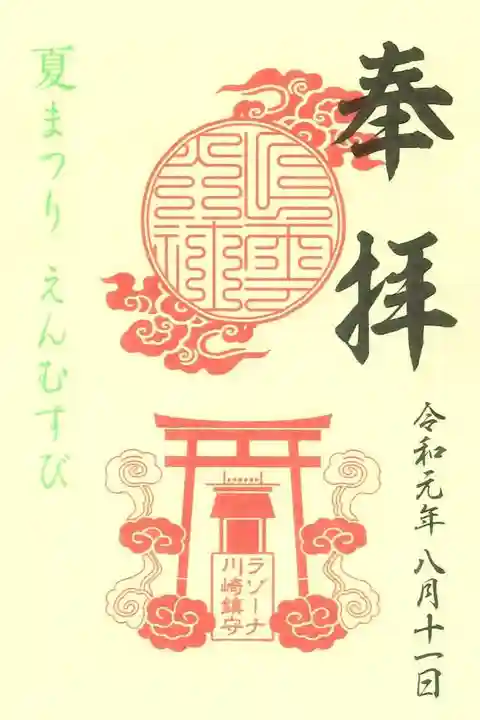 奉拝
令和元年八月十一日
ラゾーナ
川崎鎮守
夏まつり えんむすび